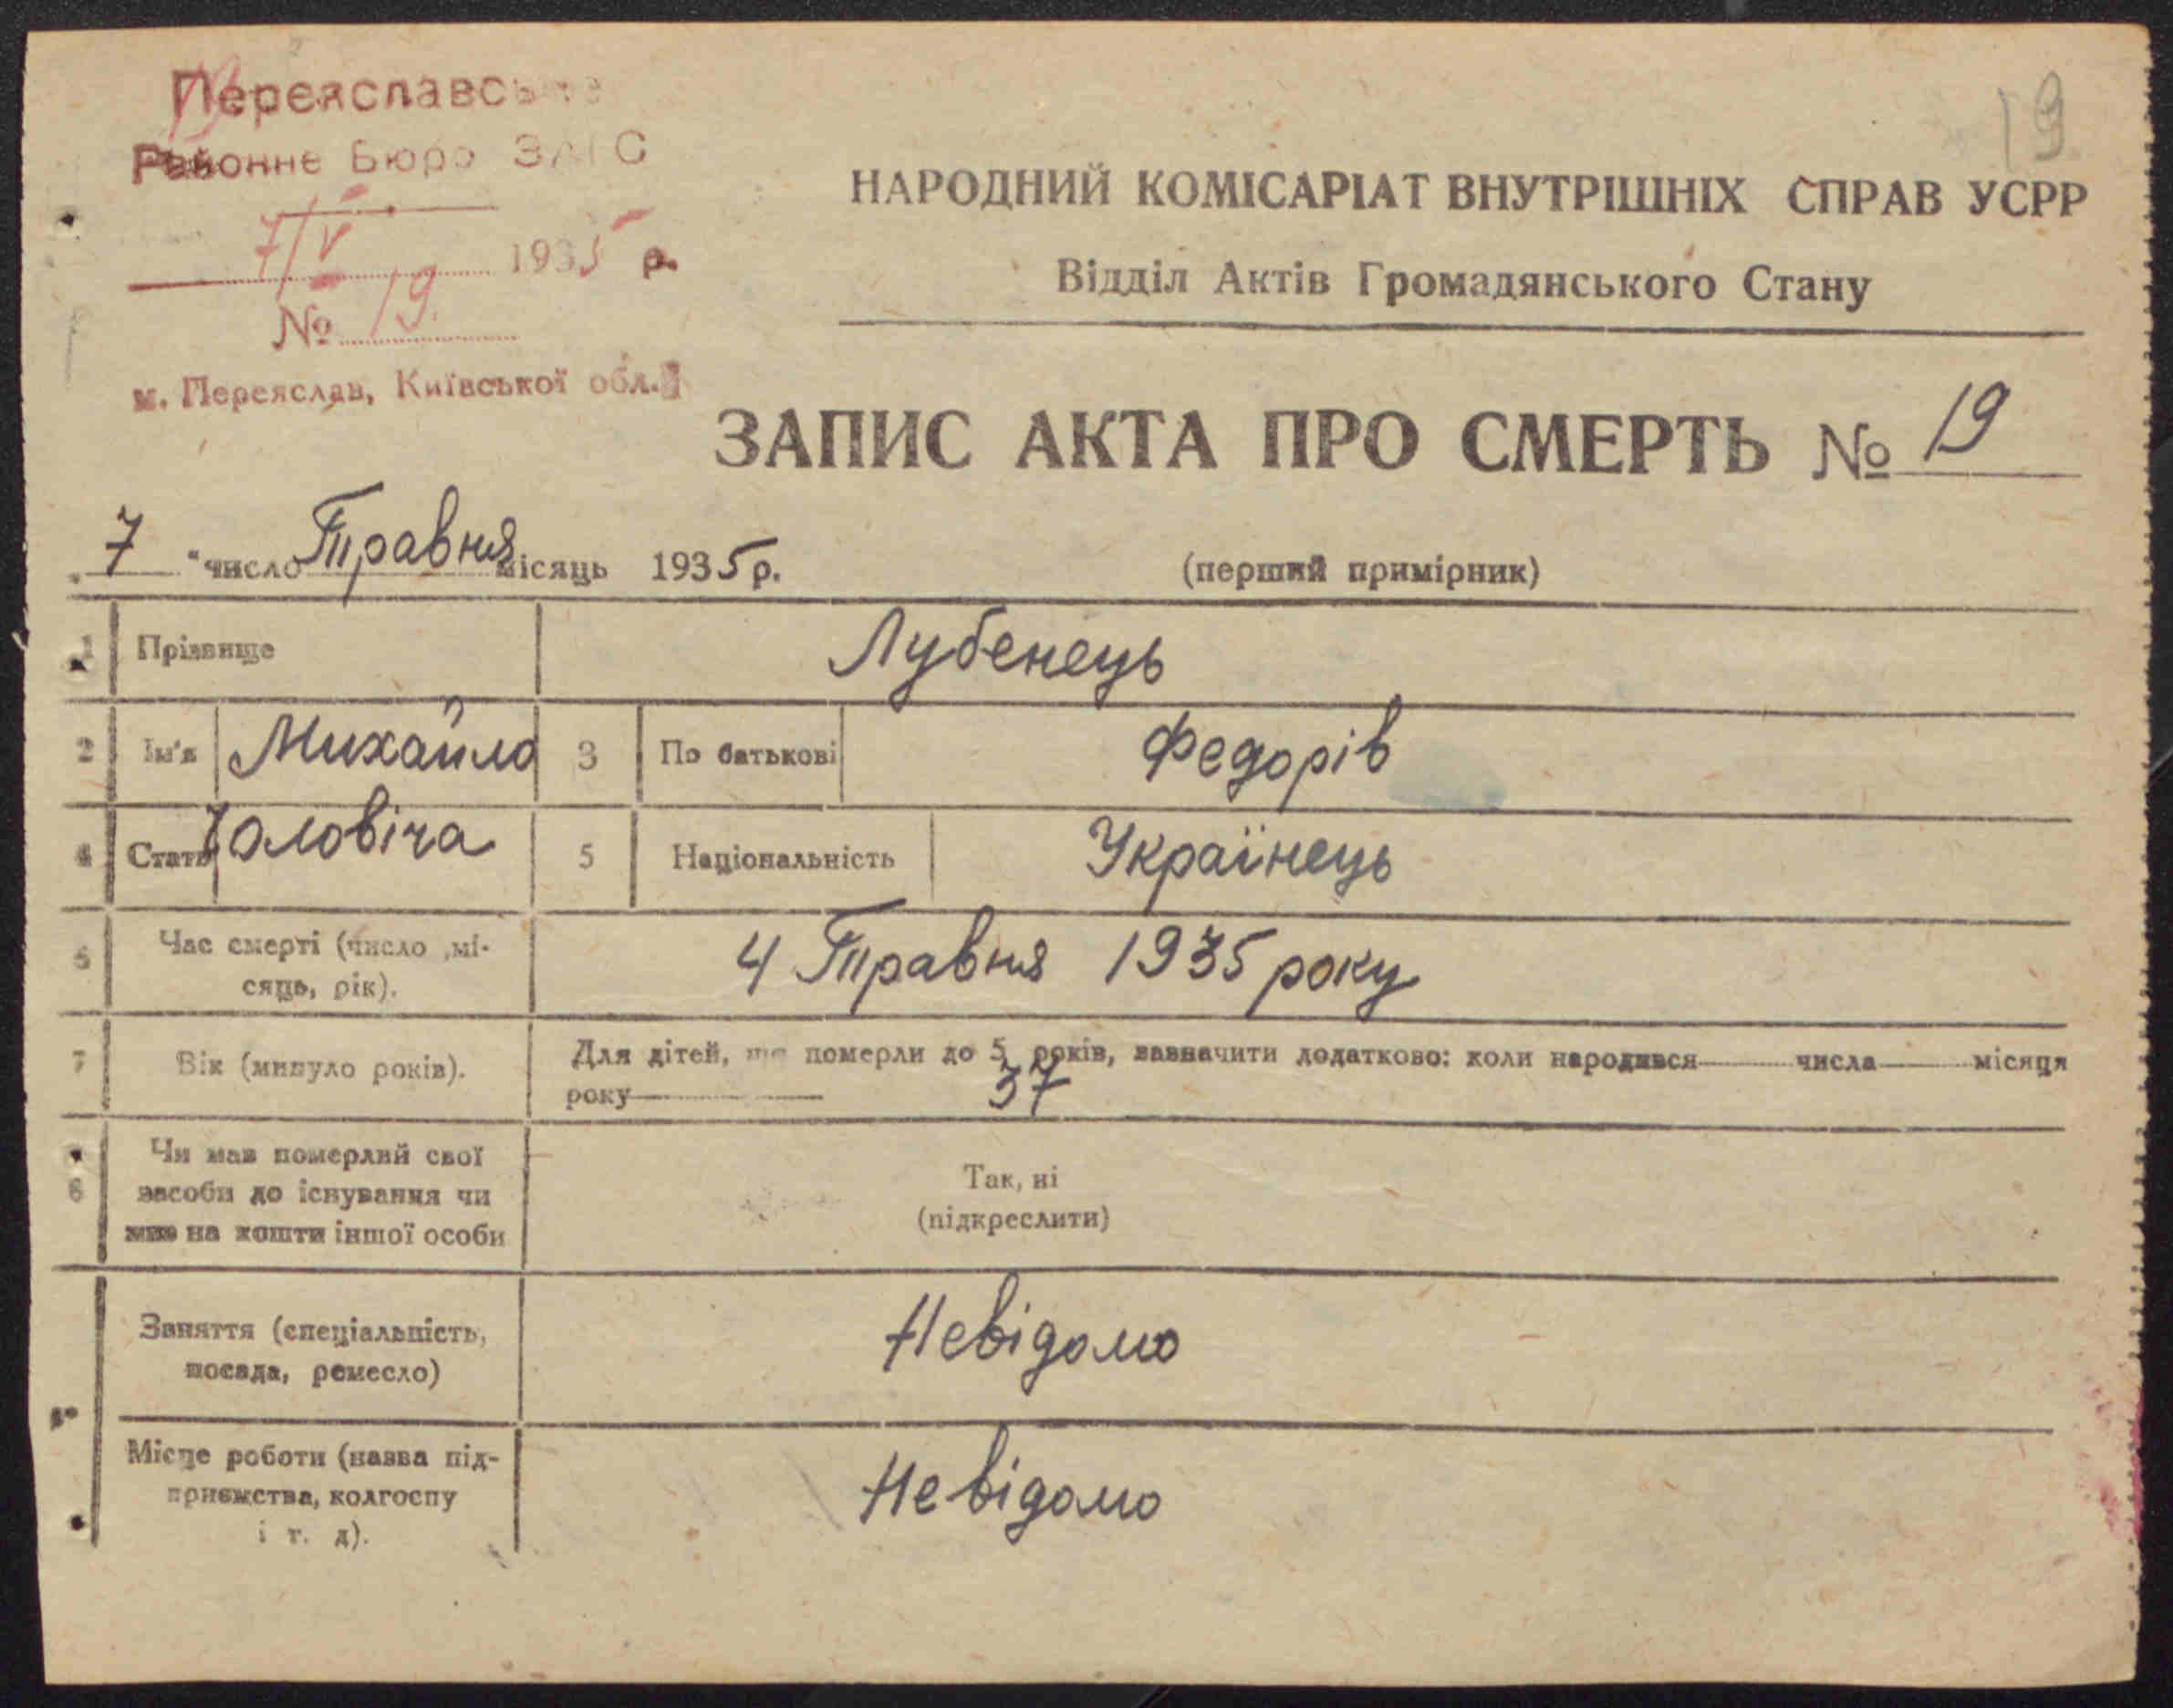 19
Переяславське
Районне Бюро ЗАГС
7/V 1935 р.
№ 19.
м. Переяслав, Київської обл.
НАРОДНИЙ КОМІСАРІАТ ВНУТРІШНІХ СПРАВ УСРР
Відділ Актів Громадянського Стану
ЗАПИС АКТА ПРО СМЕРТЬ № 19
„ 7 “ число Травня місяць 1935 р.
(перший примірник)
1 Прізвище Лубенець
2 Ім'я Михайло 3 По батькові Федорів
4 Стать Чоловіча 5 Національність Українець
6 Час смерті (число ,мі-
сяць, рік).
4 Травня 1935 року
7 Вік (минуло років).
Для дітей, що померли до 5 років, зазначити додатково: коли народився числа місяця
року 37
8 Чи мав померлий свої
засоби до існування чи
жив на кошти іншої особи
Так, ні
(підкреслити)
Заняття (спеціальність,
посада, ремесло)
Невідомо
Місце роботи (назва під-
приємства, колгоспу
і т. д).
Невідомо